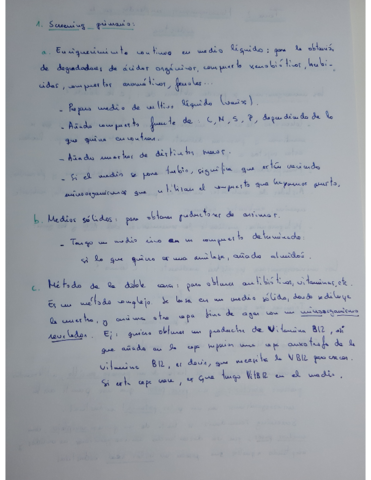 1. Screening primario:
a. Enriquecimiento continuo en medio líquido: para la obtención
de degradadores de ácidos orgánicos, compuestos xenobióticos, herbi-
cidas, compuestos aromáticos, fenoles...
- Preparo medio de cultivo líquido
- Añado compuesto fuente de C, N, S, P, dependiendo de lo
que quiera encontrar.
- Añado muestras de distintas
- Si el medio se pone turbio, significa que están creciendo
microorganismos que utilizan el compuesto que hayamos puesto.
b. Medios sólidos: para obtener productores de enzimas.
- Tengo un medio con un compuesto determinado:
si lo que quiero es una amilasa, añado almidón.
c. Método de la doble capa: para obtener antibióticos, vitaminas, etc.
Es un método complejo. Se basa en un medio sólido, donde
la muestra, y encima otra capa fina de agar con un microorganismo
revelador. Ej: quiero obtener un productor de Vitamina B12, así
que añado en la capa superior una cepa auxótrofa de la
vitamina B12, es decir, que necesita la VB12 para crecer.
Si esta cepa crece, es que tengo VB12 en el medio.